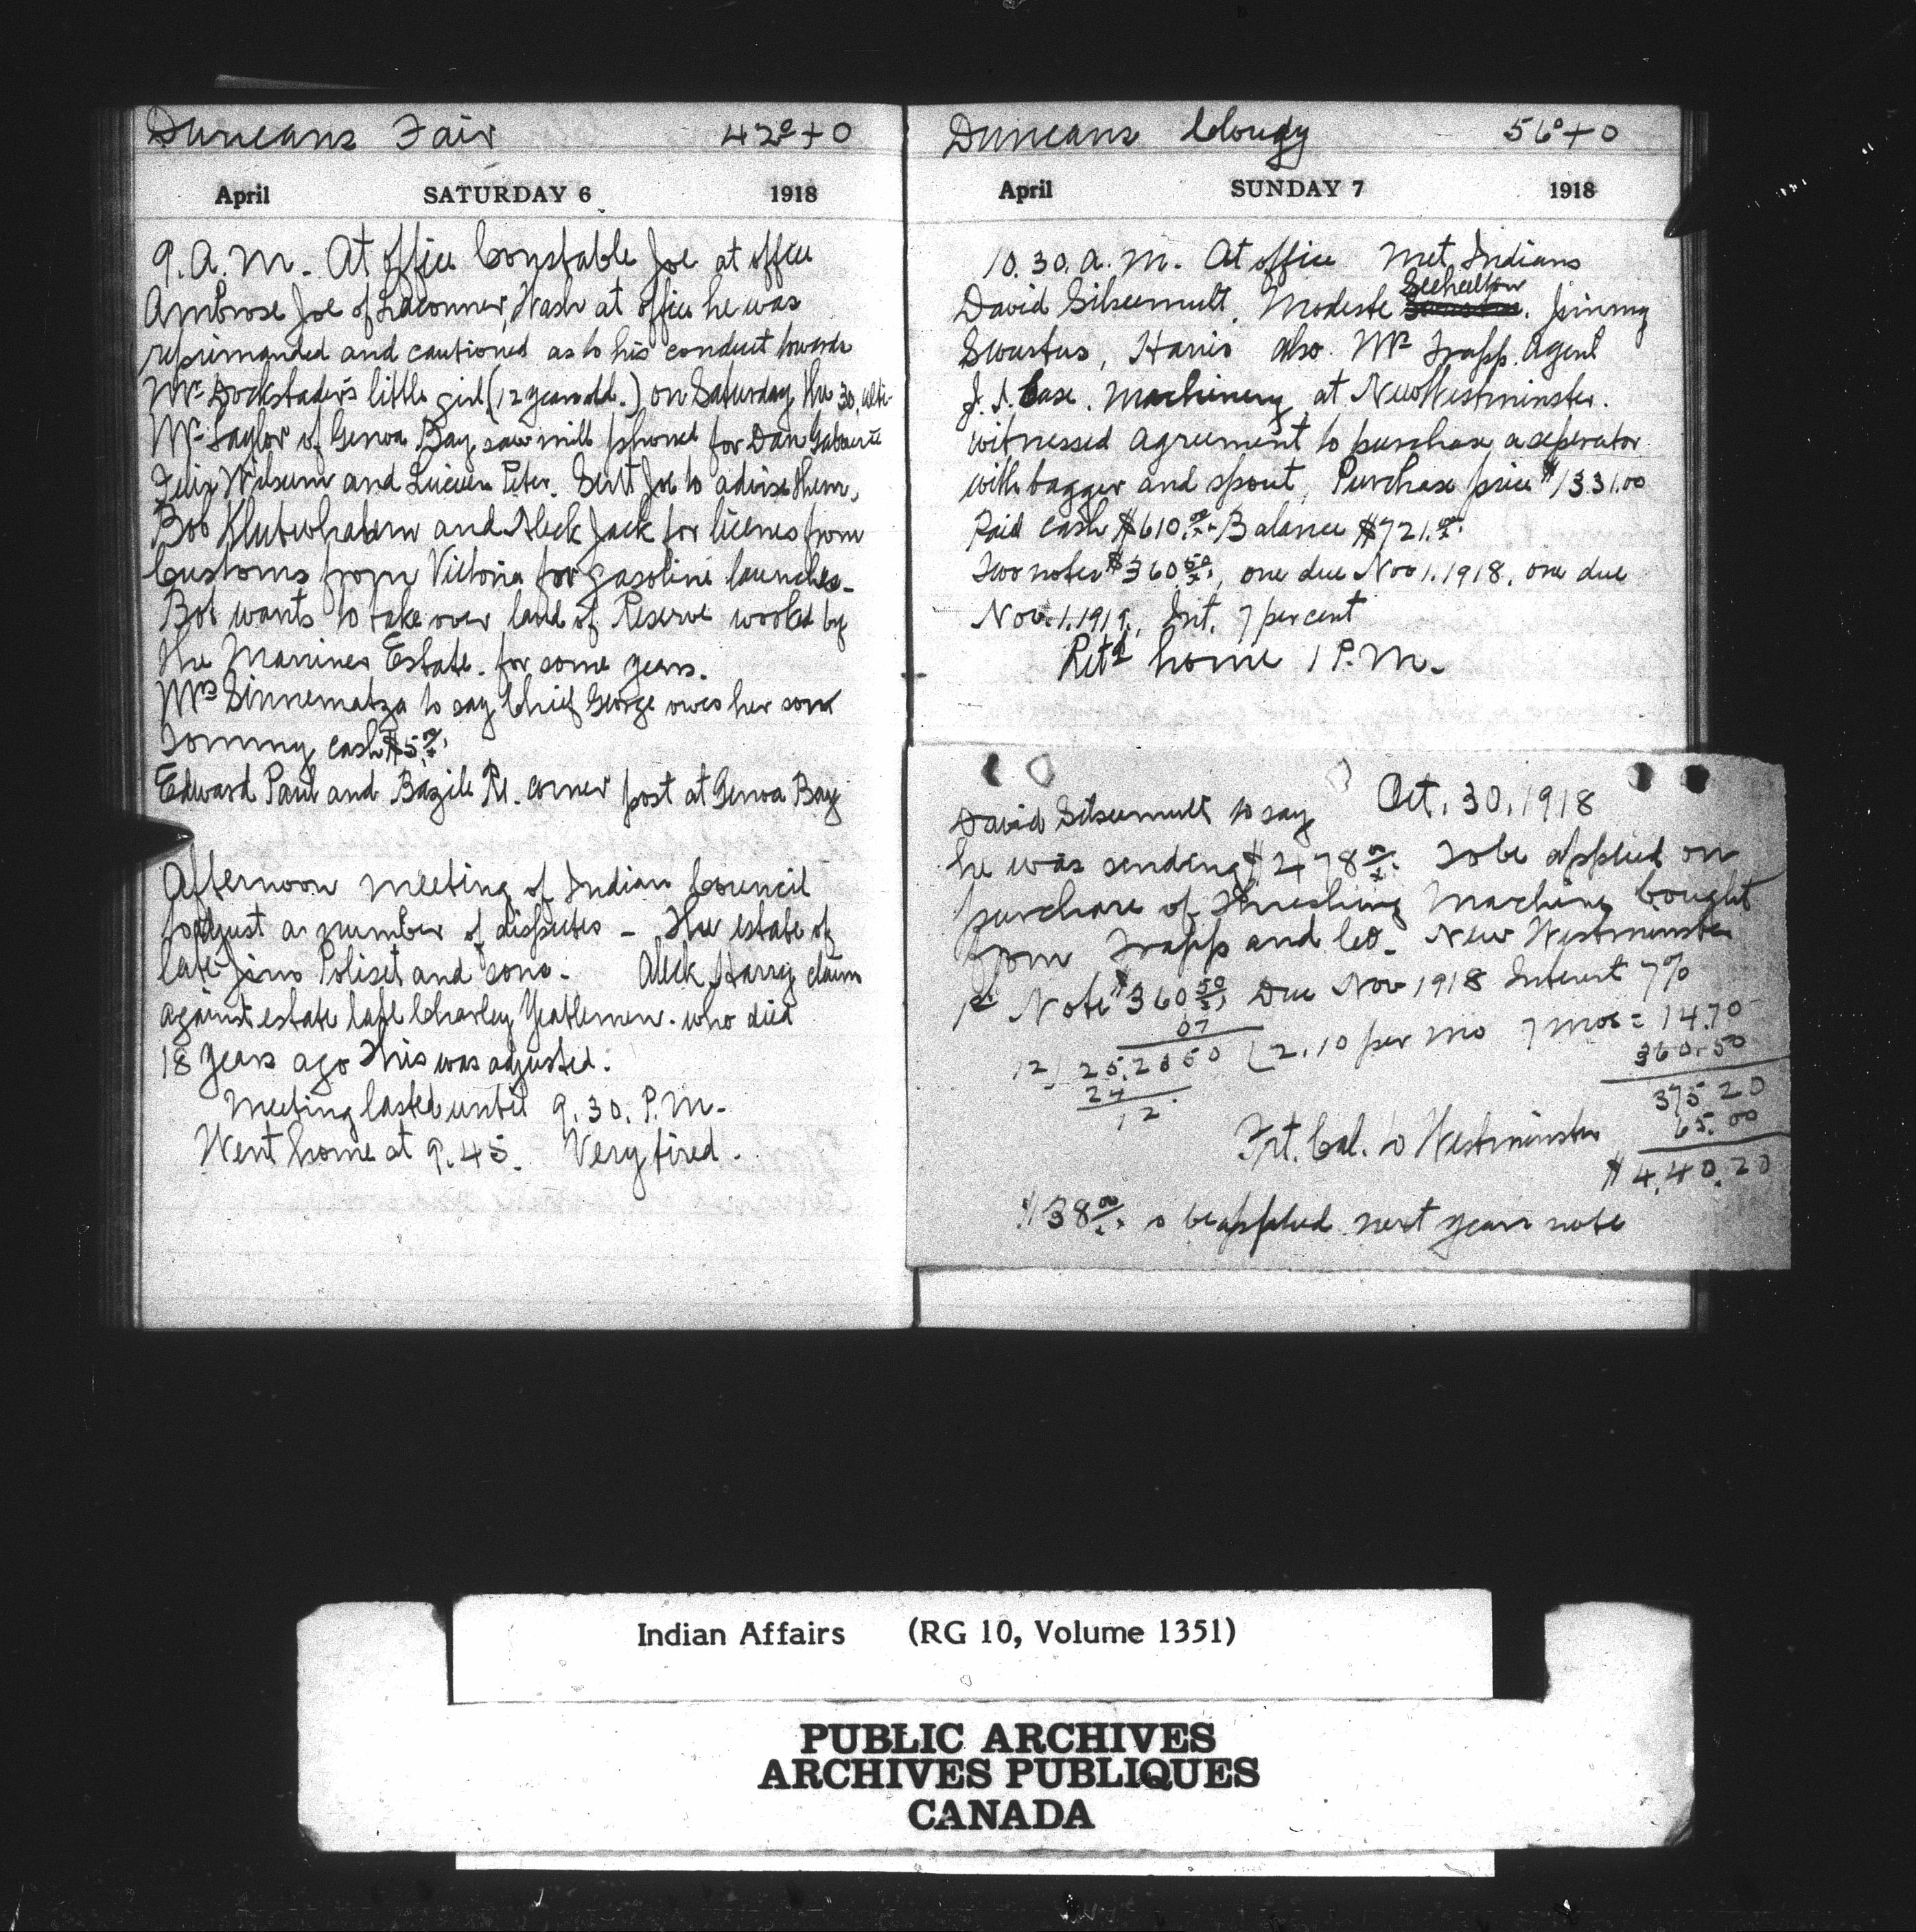 Duncans Fair 42°+0
April SATURDAY 6 1918
9. A. M. - At office Constable Joe at office
Ambrose Joe of Laconner, Wash at office he was
reprimanded and cautioned as to his conduct towards
Mr Dockstader's little girl (12 years old.) on Saturday the 30. ulti-
Mr Taylor of Genoa Bay saw mill phoned for Dan
Felix Wilsum and Lucien Peter. Sent Joe to advise them,
Bob and Aleck Jack for licenses from
Customs from Victoria for gasoline launches -
Bob wants to take over land of Reserve worked by
the Marriner Estate. for some years.
Mrs Sinnematza to say Chief George owes her son
Tommy cash $5.00.
Edward Paul and Bazile Re. corner post at Genoa Bay
Afternoon meeting of Indian Council
to adjust a number of disputes - The estate of
late Jim Poliset and sons - Aleck Harry claim
against estate late Charley who died
18 years ago This was adjusted.
Meeting lasted until 9.30. P.M.-
Went home at 9.45. Very tired.
Duncans Cloudy 56°+0
April SUNDAY 7 1918
10.30. a. m. At office Met, Indians
Seehelton
David Sitseemult, Modeste Jimmy
Swustus, Harris also Mr Trapp. Agent
J. I. Case. Machinery at New Westminster.
witnessed agreement to purchase a seperator
with bagger and spout, Purchase price $1331.00
Paid cash $610.00 - Balance $721.00.
Two notes $360.50, one due Nov 1. 1918, one due
Nov. 1. 1919., Int. 7 per cent
Retd home 1 P.M.-
Oct. 30, 1918
David Sitseemult to say
he was sending $478.00. To be applied on
purchase of Threshing Machine bought
from Trapp and Co. New Westminster
1st Note $360.50, Due Nov 1918 Interest 7%
07
12) 25.2350 (2.10 per mo 7 mos = 14.70
24 360.50
12. 375.20
Frt. Cal. to Westminster 65.00
$4,40.20
$38.00. to be applied next years note
Indian Affairs (RG 10, Volume 1351)
PUBLIC ARCHIVES
ARCHIVES PUBLIQUES
CANADA